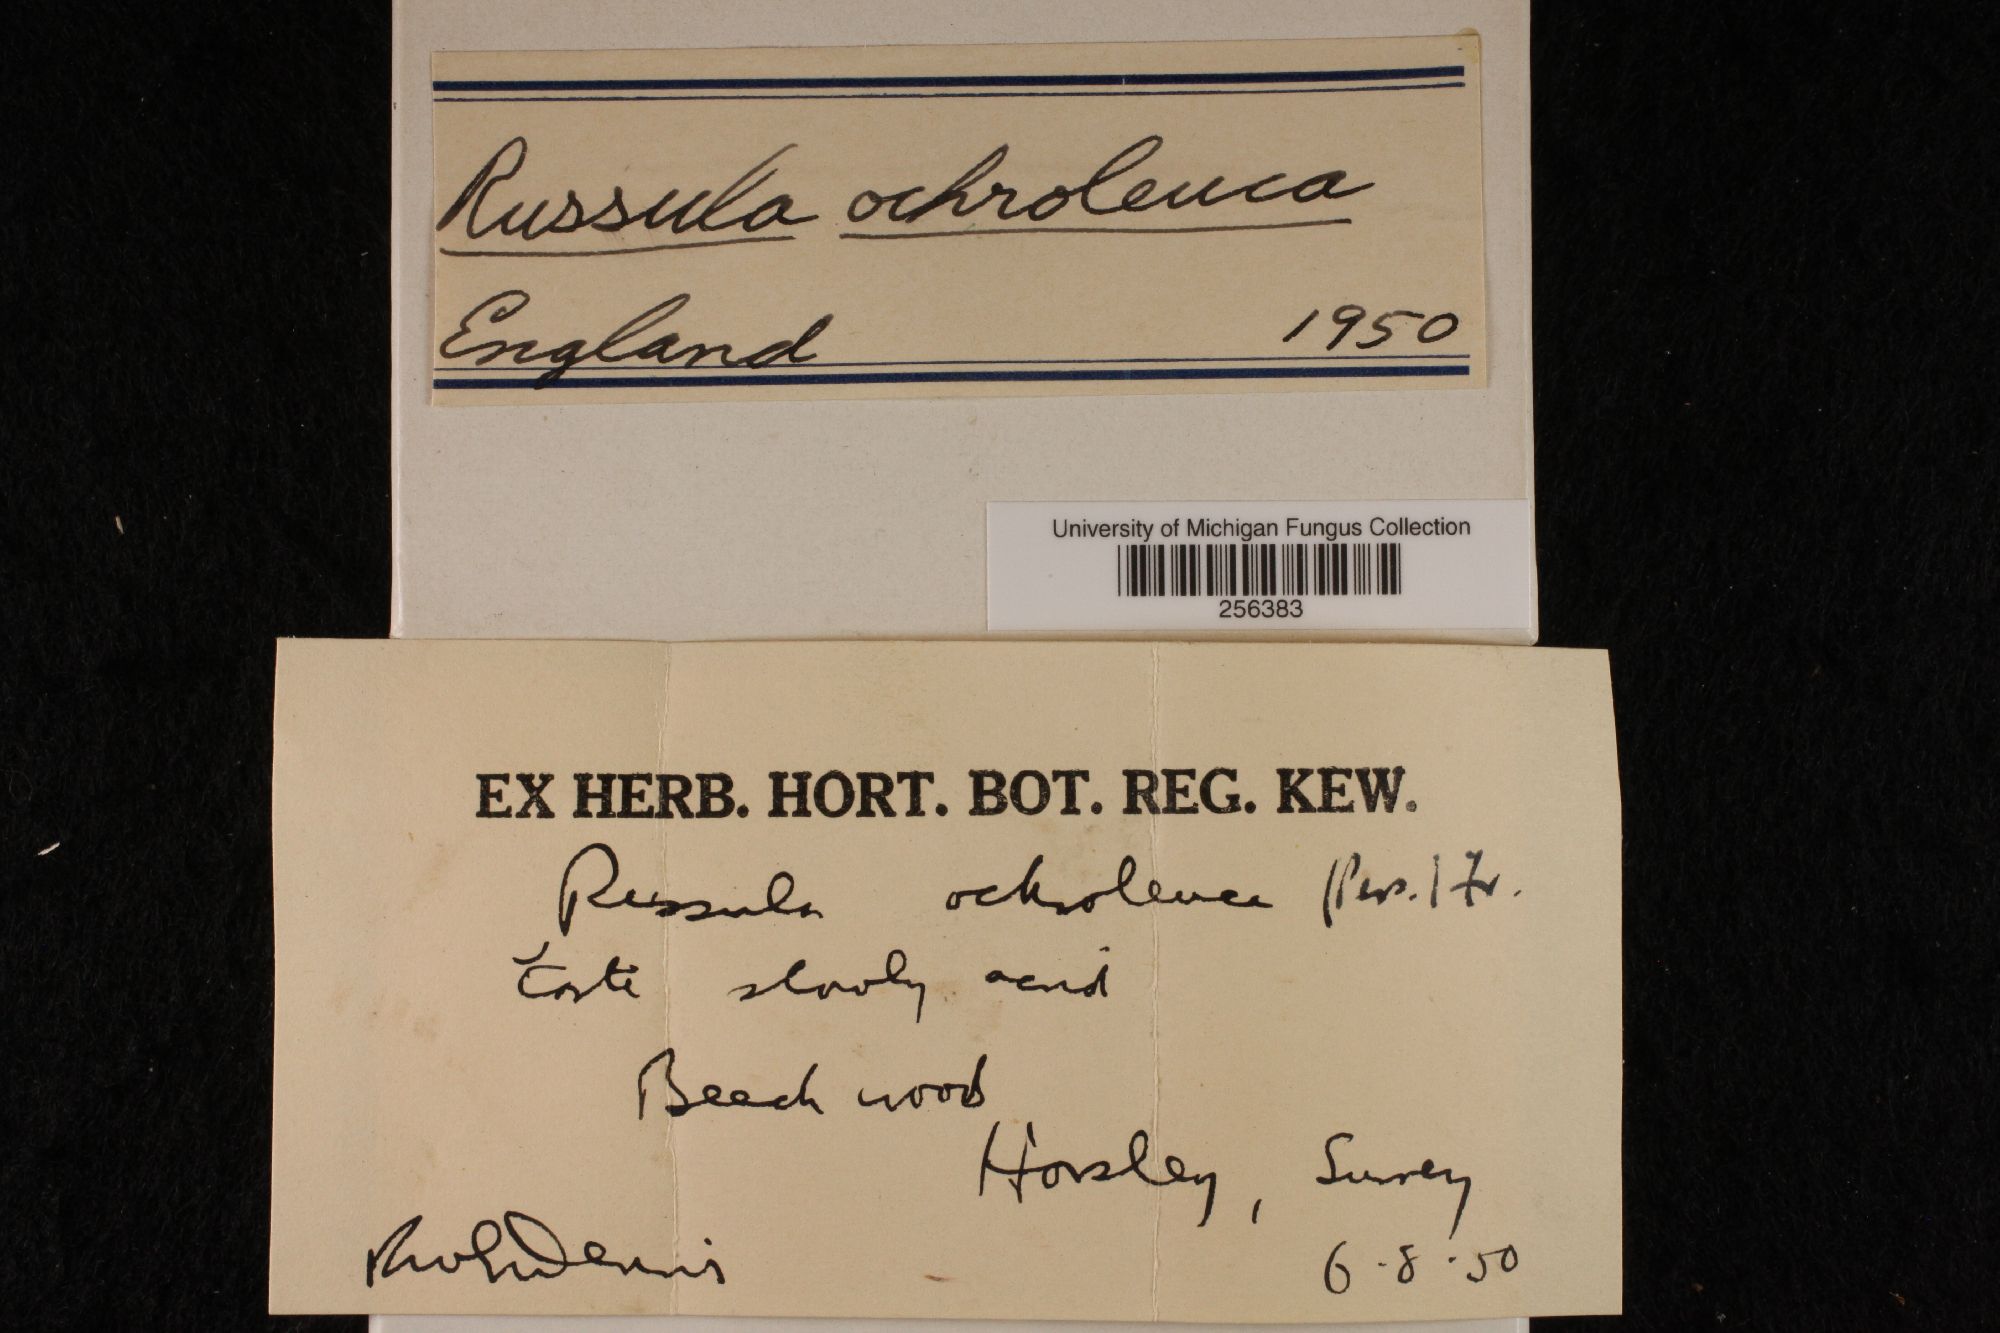 Russula ochroleuca
England 1950
University of Michigan Fungus Collection
256383
EX HERB. HORT. BOT. REG. KEW.
Russula ochroleuca (Pers.) Fr.
Taste slowly acrid
Beech wood
Horsley, Surrey
RWGDennis 6-8-50